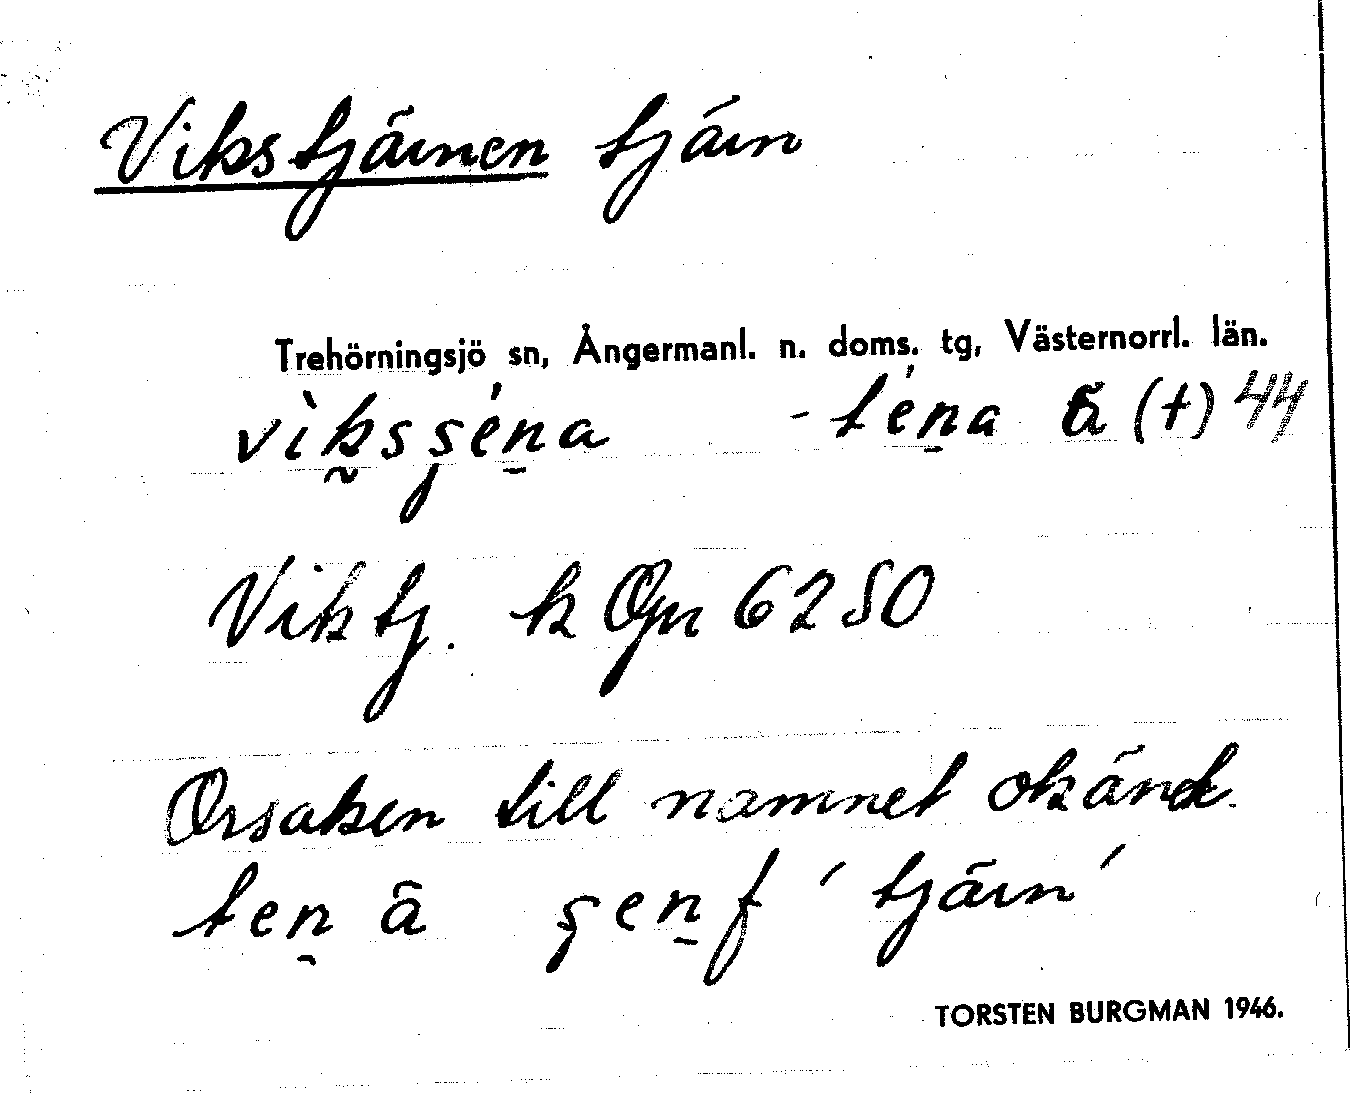 Vikstjärnen tjärn
Trehörningsjö sn, Ångermanl. n. doms. tg, Västernorrl. län.
vìksşéna - téna ä (t) 44
Viktj. k Opn 6250
Orsaken till namnet okänd.
ten ä şen f 'tjärn'
TORSTEN BURGMAN 1946.